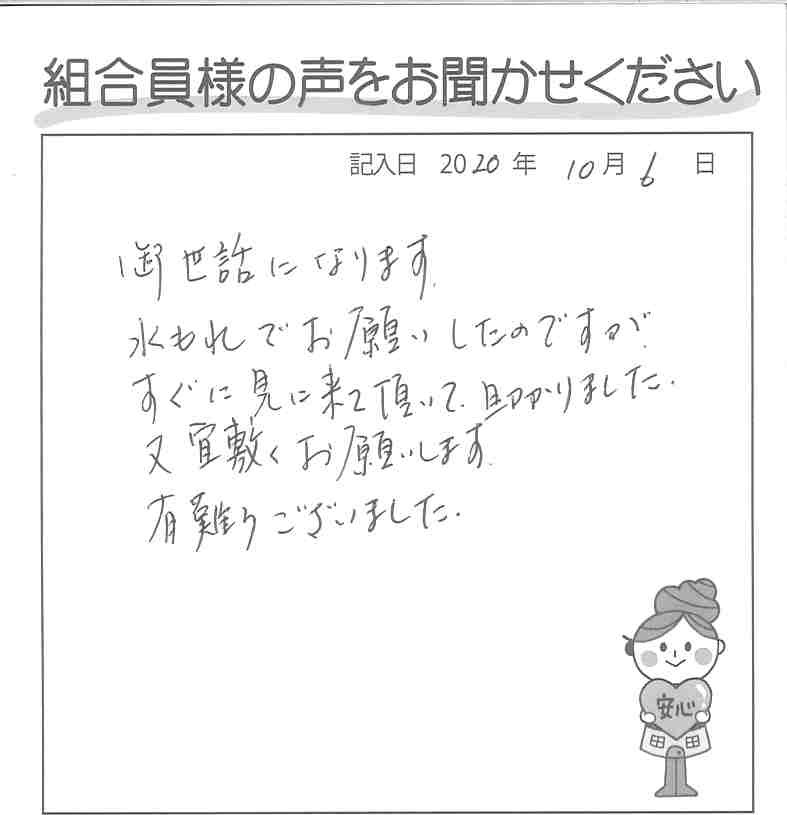 組合員様の声をお聞かせください
記入日 2020年 10月 6日
御世話になります。
水もれでお願いしたのですが、
すぐに見に来て頂いて、助かりました。
又宜敷くお願いします。
有難うございました。
安心